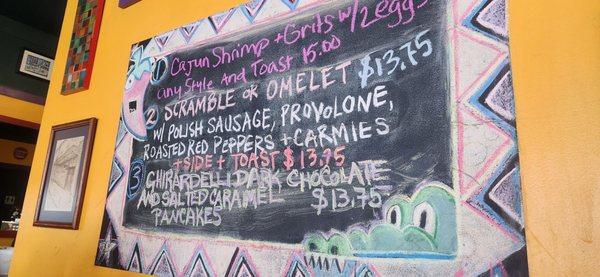 ① Cajun Shrimp + Grits w/ 2 eggs
any Style And Toast 15.00
② SCRAMBLE OR OMELET $13.75
w/ POLISH SAUSAGE, PROVOLONE,
ROASTED RED PEPPERS + CARMIES
+ SIDE + TOAST $13.75
③ GHIRARDELLI DARK CHOCOLATE
AND SALTED CARAMEL $13.75
PANCAKES